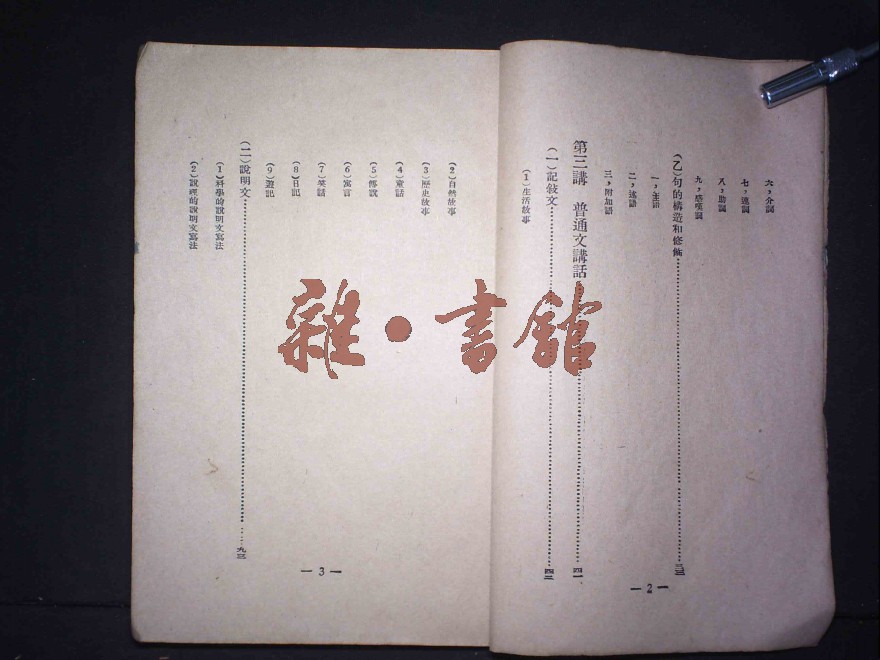 六，介詞
七，連詞
八，助詞
九，感嘆詞
(乙)句的構造和修飾
一，主語
二，述語
三，附加語
第三講　普通文講話……四一
(一)記敍文……四三
(1)生活故事
—2—
(2)自然故事
(3)歷史故事
(4)童話
(5)傳說
(6)寓言
(7)笑話
(8)日記
(9)遊記
(二)說明文……九三
(1)科學的說明文寫法
(2)說理的說明文寫法
—3—
雜·書館